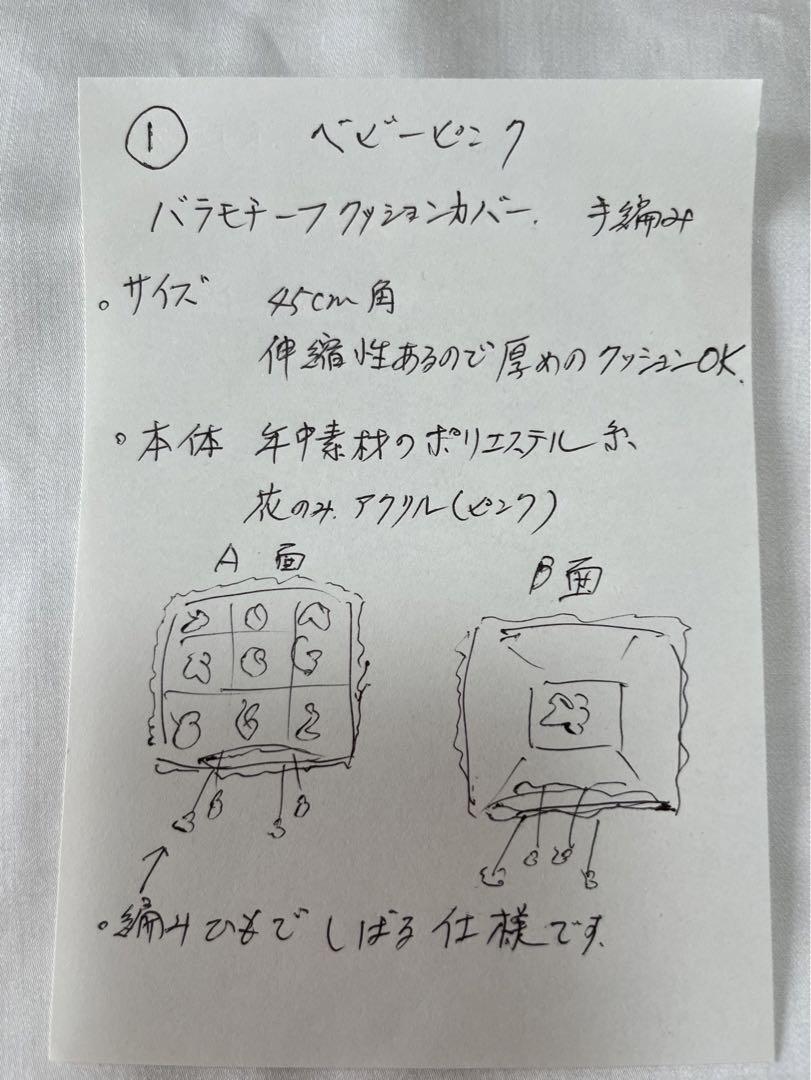 ① ベビーピンク
バラモチーフクッションカバー. 手編み
。サイズ 45cm角
伸縮性あるので厚めのクッションOK.
。本体 年中素材のポリエステル糸、
花のみ. アクリル(ピンク)
A面
B面
。編みひもでしばる仕様です.